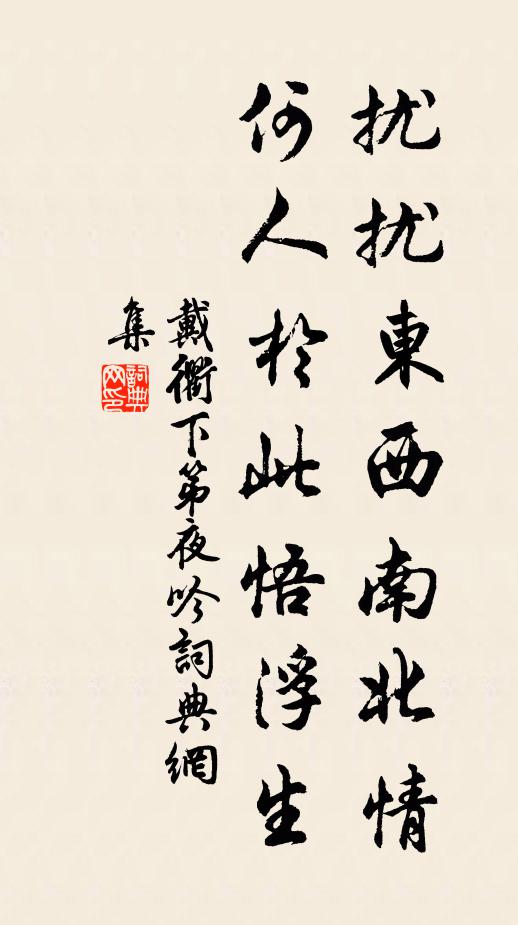 扰扰東西南北情
何人於此悟浮生
戴衢下第夜吟詞典網
集
詞典
网印